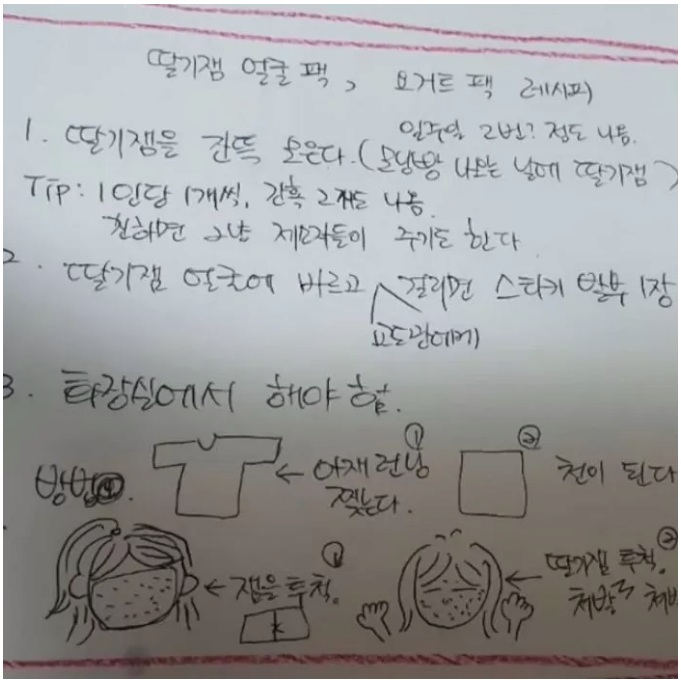 딸기잼 얼굴 팩, 요거트 팩 레시피)
일주일 2번? 정도 나옴.
1. 딸기잼을 잔뜩 모은다. (모닝빵 나오는 날에 딸기잼)
Tip: 1인당 1개씩, 간혹 2개도 나옴.
친하면 그냥 제소자들이 주기도 한다
2. 딸기잼 얼굴에 바르고 걸리면 스티커 발부 1장
교도관에게)
3. 화장실에서 해야 함.
방법
① ← 아재런닝
찢는다.
② 천이 된다
← 잼을 투척. ①
← 딸기잼 투척. ②